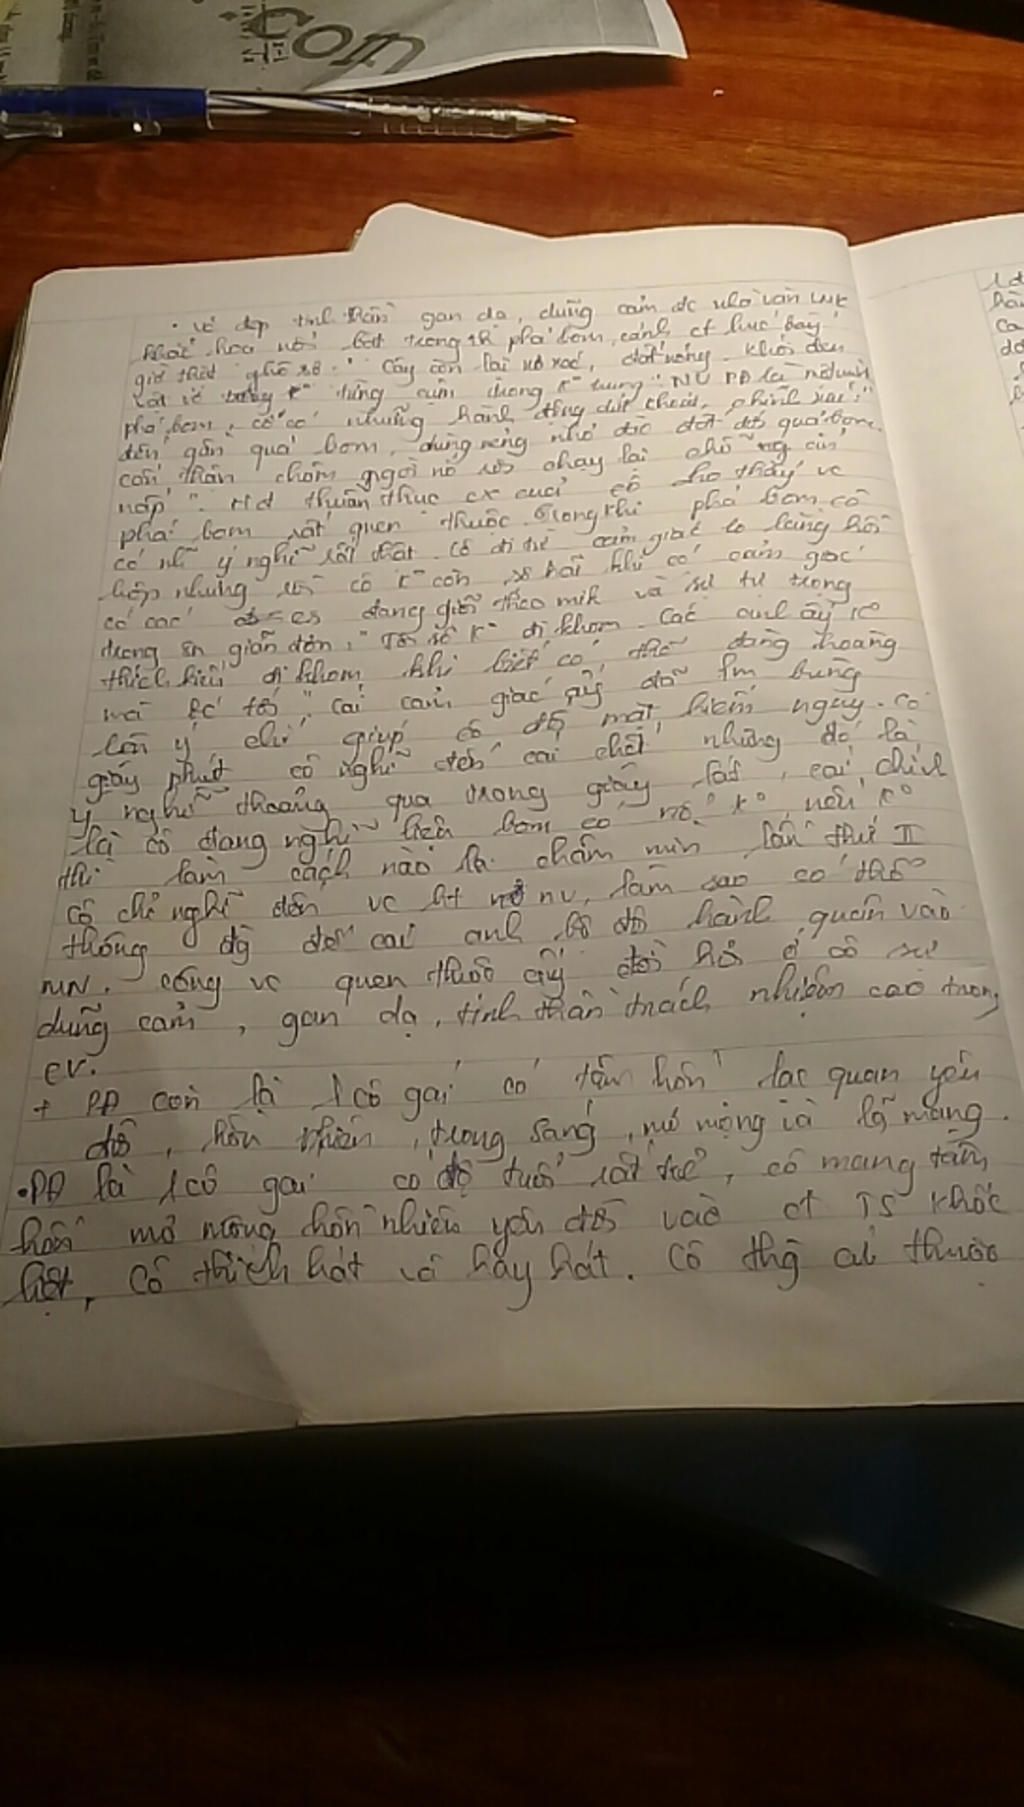 com
. vẻ đẹp tinh thần gan dạ, dũng cảm đc nhà văn LMK
khắc hoạ nổi bật trong th phá bom, cảnh ct lúc bấy
giờ thật ghê rợ. " Cây còn lại xơ xác, đất nóng. khói đen
vật vờ từng cụm trong k⁰ trung" NV PĐ là nữ
phá bom, cô có những hành động dứt khoát, chính xác: "
đến gần quả bom, dùng xẻng nhỏ đào đất đặt quả bom.
cẩn thận châm ngòi nổ rồi chạy lại chỗ ng ẩn
nấp". Hđ thuần thục cx của cô cho thấy vc
phá bom rất quen thuộc. Trong khi phá bom cô
có n~ ý nghĩ rất thật. cô đi từ cảm giác lo lắng hồi
hộp nhưng rồi cô k⁰ còn sợ hãi khi có cảm giác
có các a cs đang dõi theo mik và sự tự trọng
trong sn giản đơn: " Tôi sẽ k⁰ đi khom. Các anh ấy k⁰
thích kiểu đi khom khi biết có thể đàng hoàng
mà bc tới". cái cảm giác ấy đã lm bừng
lên ý chí giúp cô đối mặt hiểm nguy. Có
giây phút cô nghĩ đến cái chết nhưng đó là
ý nghĩ thoáng qua trong giây lát, cái chính
là cô đang nghĩ liệu bom có nổ k⁰, nếu k⁰
thì làm cách nào để châm mìn lần thứ II
cô chỉ nghĩ đến vc ht nv, làm sao có thể
thông đg để các anh bộ đội hành quân vào
MN. công vc quen thuộc ấy đòi hỏi ở cô sự
dũng cảm, gan dạ, tinh thần trách nhiệm cao trong
cv.
+ PĐ còn là 1 cô gái có tâm hồn lạc quan yêu
đời, hồn nhiên, trong sáng, mơ mộng và lãng mạng.
• PĐ là 1 cô gái có độ tuổi rất trẻ, cô mang tâm
hồn mơ mộng hồn nhiên yêu đời vào ct TS khốc
liệt, Cô thích hát và hay hát. Cô thg cứ thuộc